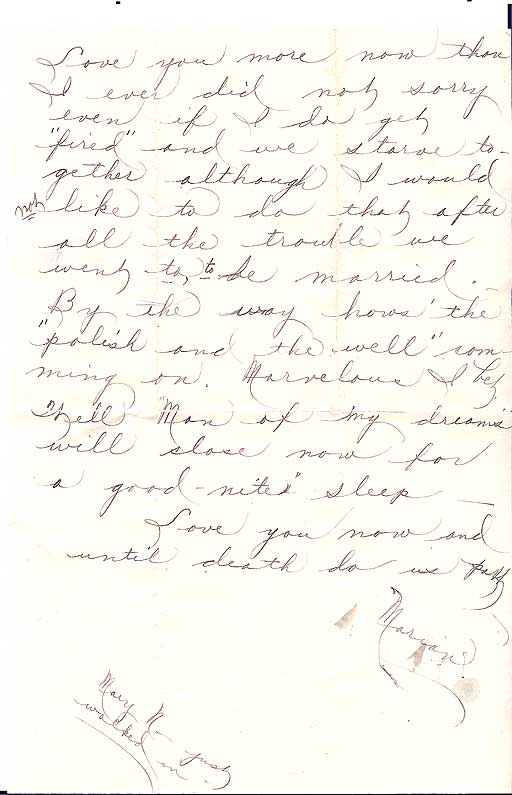 Love you more now than
I ever did not sorry
even if I do get
"fired" and we starve to-
gether although I would
not like to do that after
all the trouble we
went to, to be married.
By the way hows' the
"polish and the well" com-
ming on. Marvelous I bet
Well "Man of my dreams"
will close now for
a good-nites" sleep —
Love you now and
until death do us part
Marian
Mary N— just
walked in.